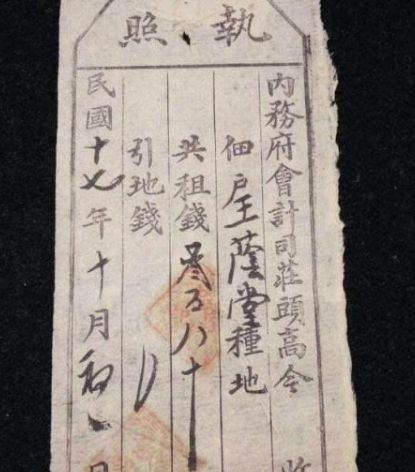 執照
內務府會計司莊頭高今
收
佃戶王蔭堂種地
共租錢叁百八十
引地錢
民國十七年十月初 日